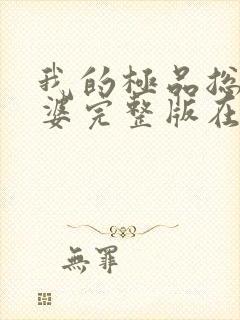 我的極品捴
婆完整版在
無罪